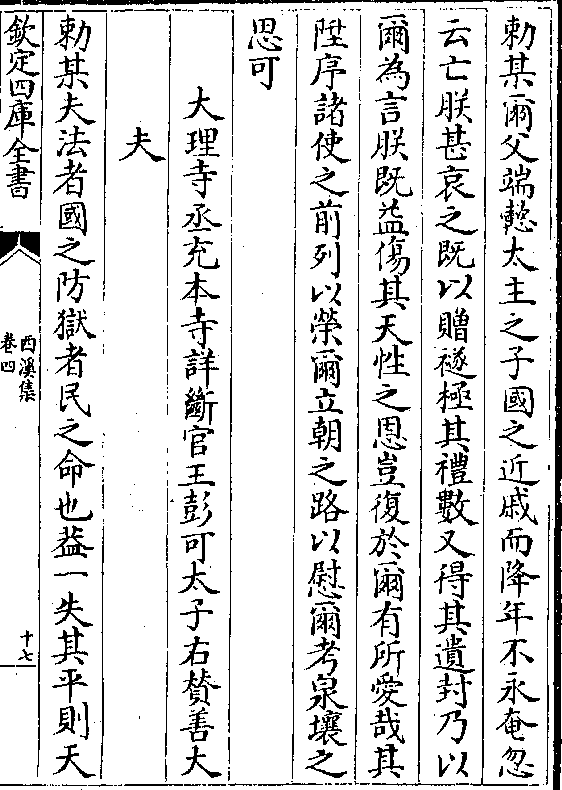 勅某爾父端懿太主之子國之近戚而降年不永奄忽
云亡朕甚哀之既以贈禭極其禮數又得其遺封乃以
爾為言朕既益傷其天性之恩豈復於爾有所愛哉其
陞序諸使之前列以榮爾立朝之路以慰爾考泉壤之
思可
大理寺丞充本寺詳斷官王彭可太子右賛善大
夫
勅某夫法者國之防獄者民之命也葢一失其平則天
欽定四庫全書
西溪集
卷四
十七